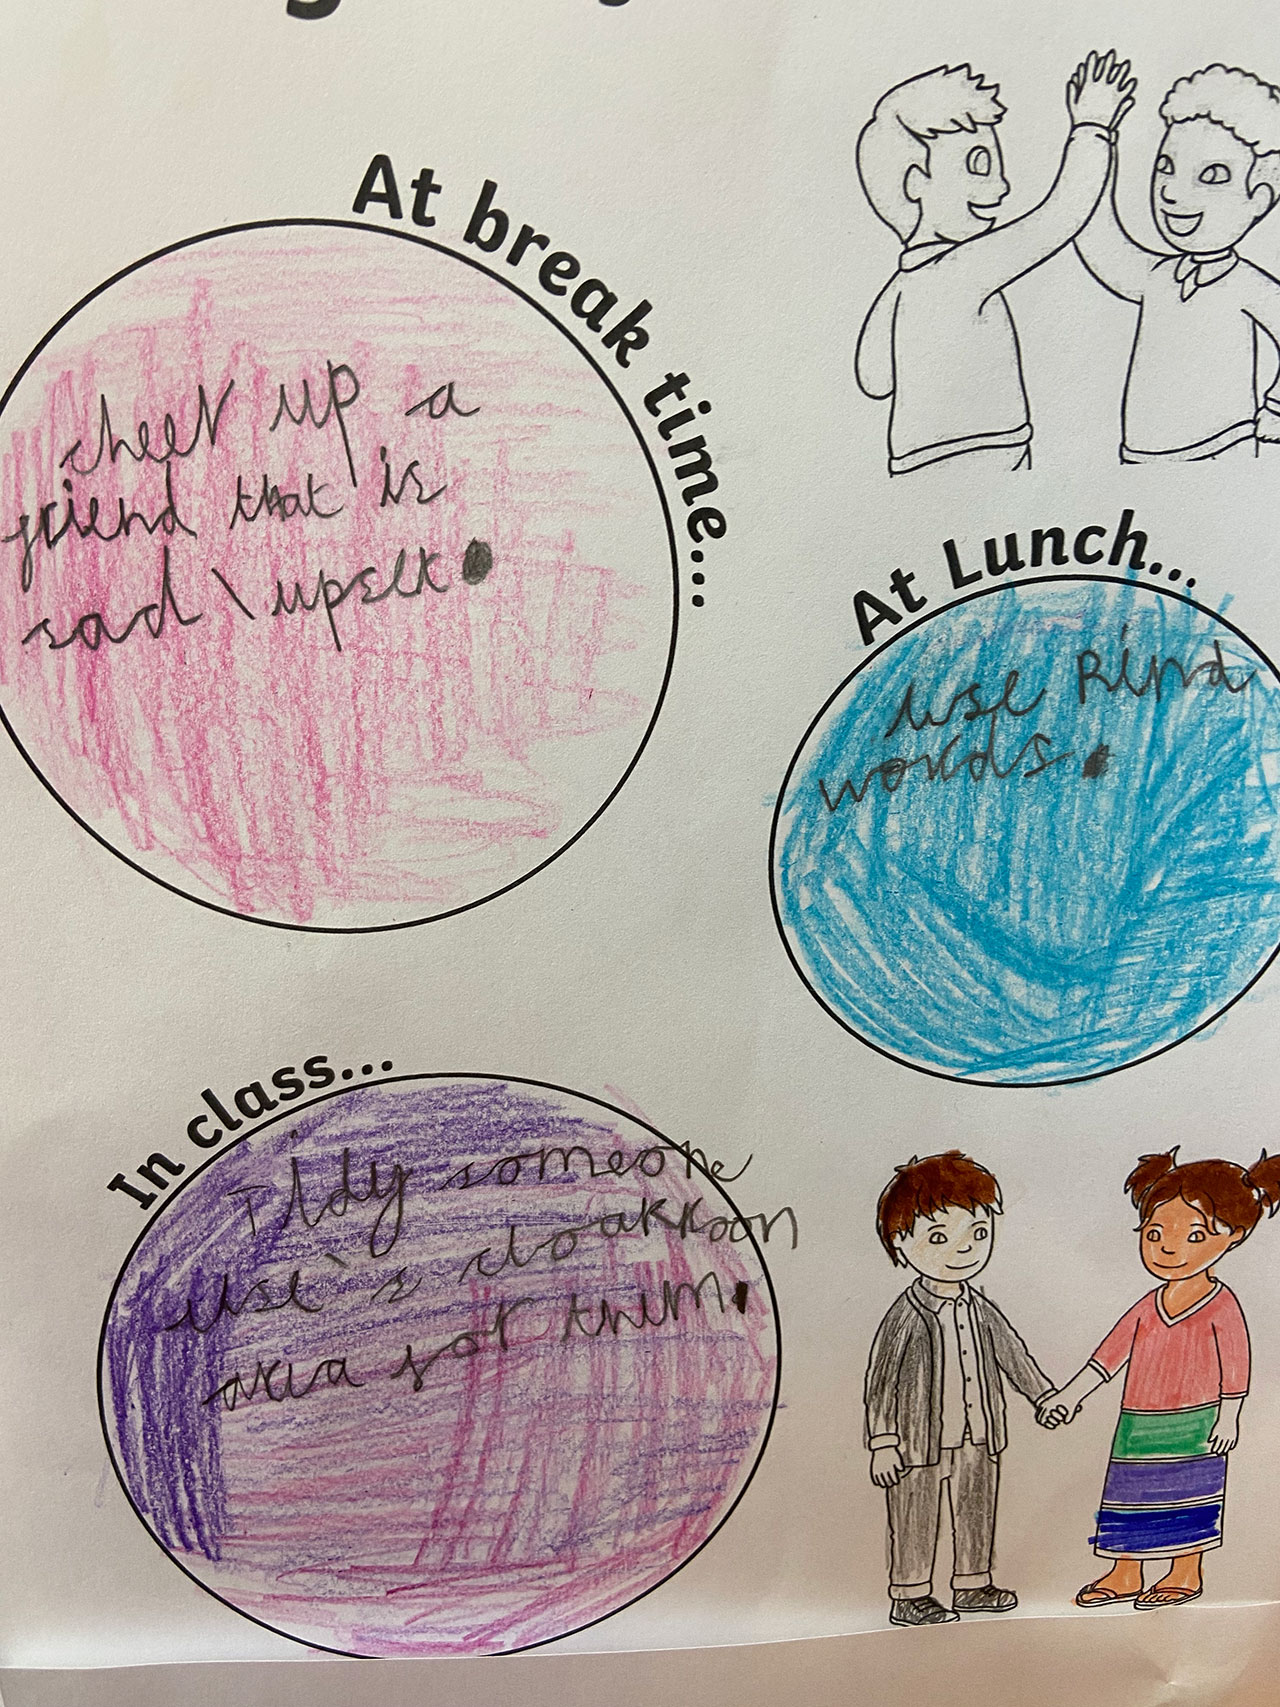 At break time...
cheer up a
friend that is
sad \ upset.
At Lunch...
use kind
words.
In class...
Tidy someone
else's cloakroom
area for them.